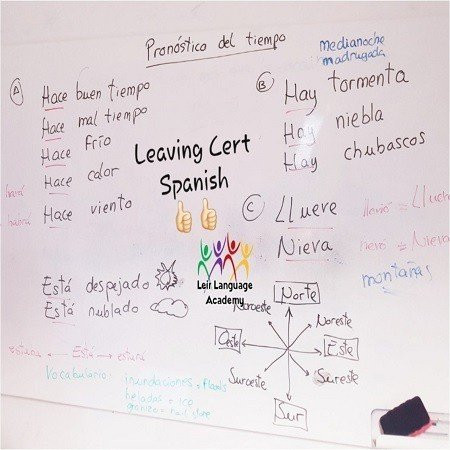 Pronóstico del tiempo
medianoche
madrugada
A
Hace buen tiempo
Hace mal tiempo
Hace frío
Hace calor
Hace viento
Está despejado
Está nublado
estaba ← Está → estará
Vocabulario:
inundaciones = floods
heladas = ice
granizo = hail
B
Hay tormenta
Hay niebla
Hay chubascos
Leaving Cert
Spanish
C
Llueve
Nieva
montañas
Leir Language
Academy
Norte
Noroeste
Noreste
Oeste
Este
Suroeste
Sureste
Sur